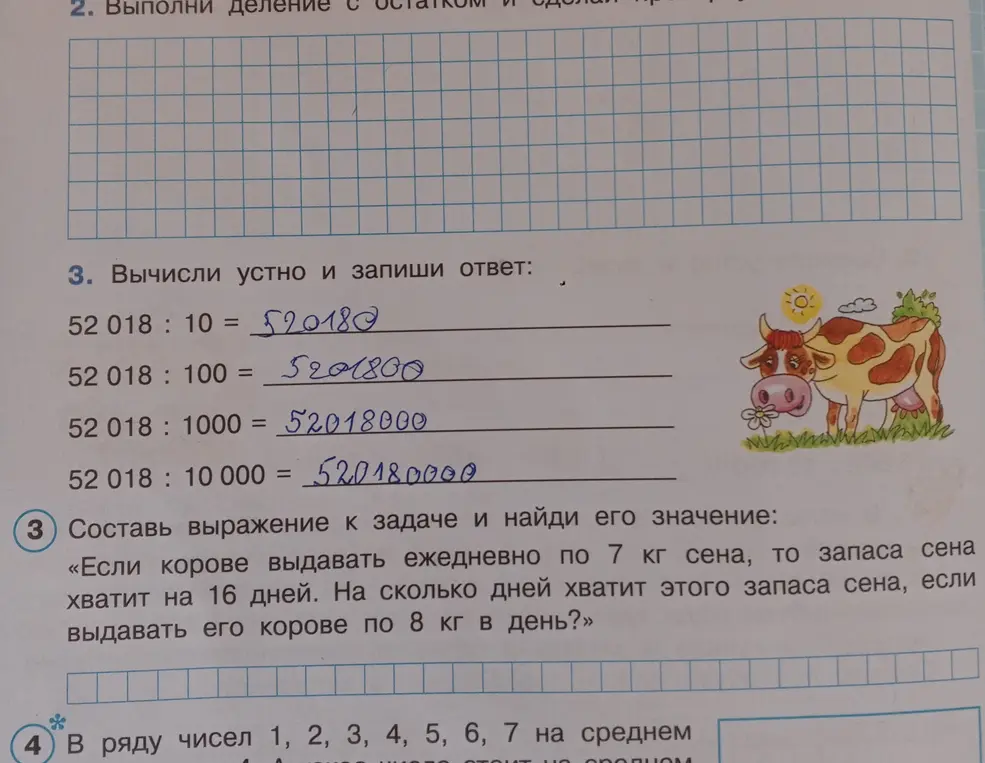 2. Выполни деление с остатком и сделай
3. Вычисли устно и запиши ответ:
52 018 : 10 = 520180
52 018 : 100 = 5201800
52 018 : 1000 = 52018000
52 018 : 10 000 = 520180000
3 Составь выражение к задаче и найди его значение:
«Если корове выдавать ежедневно по 7 кг сена, то запаса сена
хватит на 16 дней. На сколько дней хватит этого запаса сена, если
выдавать его корове по 8 кг в день?»
4* В ряду чисел 1, 2, 3, 4, 5, 6, 7 на среднем